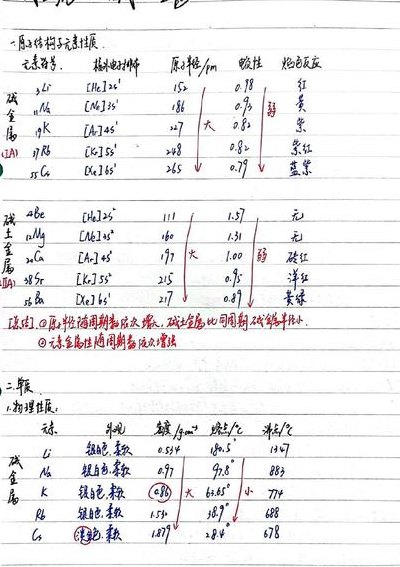 一.原子结构与元素性质.
元素符号. 核外电子排布 原子半径/pm 电负性 焰色反应
碱金属(IA)
₃Li [He]2s¹ 152 0.98 红
₁₁Na [Ne]3s¹ 186 0.93 黄
₁₉K [Ar]4s¹ 227 0.82 紫
₃₇Rb [Kr]5s¹ 248 0.82 紫红
₅₅Cs [Xe]6s¹ 265 0.79 蓝紫
大 弱
碱土金属(IIA)
₄Be [He]2s² 111 1.57 无
₁₂Mg [Ne]3s² 160 1.31 无
₂₀Ca [Ar]4s² 197 1.00 砖红
₃₈Sr [Kr]5s² 215 0.95 洋红
₅₆Ba [Xe]6s² 217 0.89 黄绿
大 弱
[总结].①原子半径随周期数依次增大，碱土金属比同周期碱金属半径小.
②元素金属性随周期数依次增强
二.单质.
1.物理性质:
元素 外观 密度/g·cm⁻³ 熔点/℃ 沸点/℃
碱金属
Li 银白色.柔软 0.534 180.5 1347
Na 银白色.柔软 0.97 97.8 883
K 银白色.柔软 0.86 63.65 774
Rb 银白色.柔软 1.532 38.9 688
Cs 淡金色.柔软 1.879 28.4 678
大 小